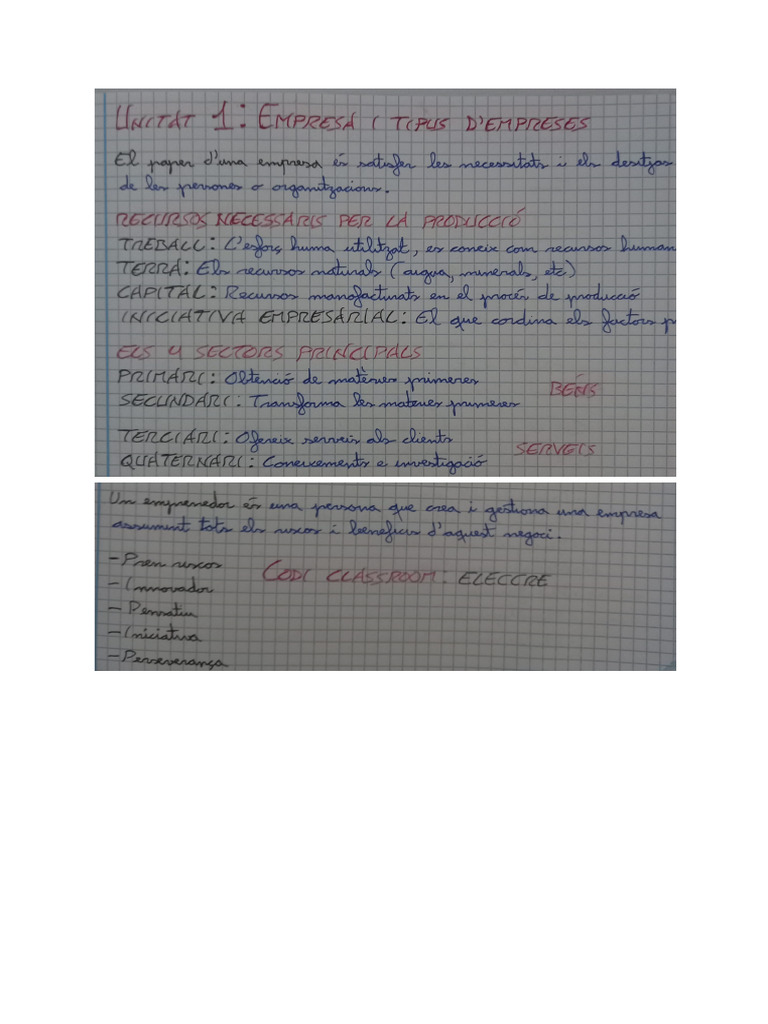 UNITAT 1: EMPRESA I TIPUS D'EMPRESES
El paper d'una empresa és satisfer les necessitats i els desitjos
de les persones o organitzacions.
RECURSOS NECESSARIS PER LA PRODUCCIÓ
TREBALL: L'esforç huma utilitzat, es coneix com recursos human
TERRA: Els recursos naturals (aigua, minerals, etc)
CAPITAL: Recursos manofacturats en el procés de producció
INICIATIVA EMPRESARIAL: El que cordina els factors p
ELS 4 SECTORS PRINCIPALS
PRIMARI: Obtenció de matèries primeres
BÉNS
SECUNDARI: Transforma les materies primeres
TERCIARI: Ofereix serveis als clients
SERVEIS
QUATERNARI: Coneixements e investigació
Un emprenedor és una persona que crea i gestiona una empresa
assumint tots els riscos i beneficis d'aquest negoci.
-Pren riscos
CODI CLASSROOM: ELECCRE
-Innovador
-Pensatiu
-Iniciativa
-Perseverança